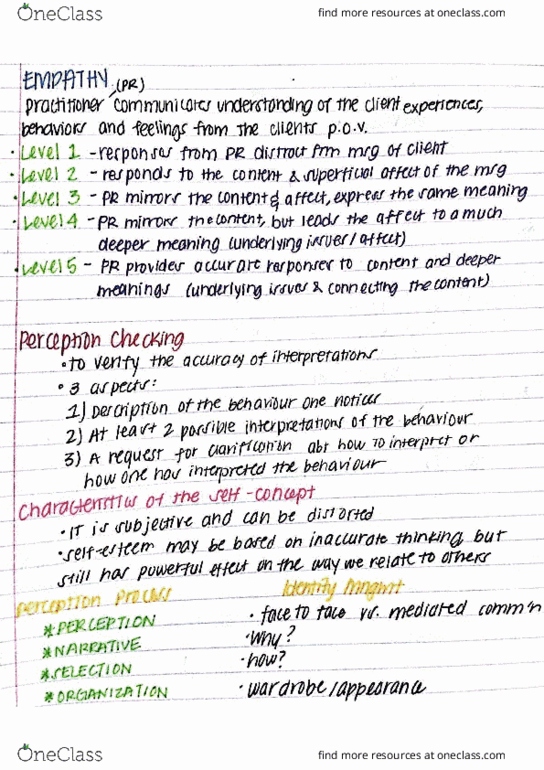 OneClass find more resources at oneclass.com
EMPATHY (PR)
practitioner communicates understanding of the client experiences,
behaviors and feelings from the clients p.o.v.
• Level 1 - responses from PR distract frm msg of client
• Level 2 - responds to the content & superficial affect of the msg
• Level 3 - PR mirrors the content & affect, express the same meaning
• Level 4 - PR mirrors the content, but leads the affect to a much
deeper meaning (underlying issues/affect)
• Level 5 - PR provides accurate responses to content and deeper
meanings (underlying issues & connecting the content)
Perception Checking
• to verify the accuracy of interpretations
• 3 aspects:
1) Description of the behaviour one notices
2) At least 2 possible interpretations of the behaviour
3) A request for clarification abt how to interpret or
how one has interpreted the behaviour
Characteristics of the self-concept
• It is subjective and can be distorted
• self-esteem may be based on inaccurate thinking, but
still has powerful effect on the way we relate to others
Perception Process
* PERCEPTION
* NARRATIVE
* SELECTION
* ORGANIZATION
Identity Mngmt
• face to face vs. mediated comm'n
• why?
• how?
• wardrobe/appearance
OneClass find more resources at oneclass.com